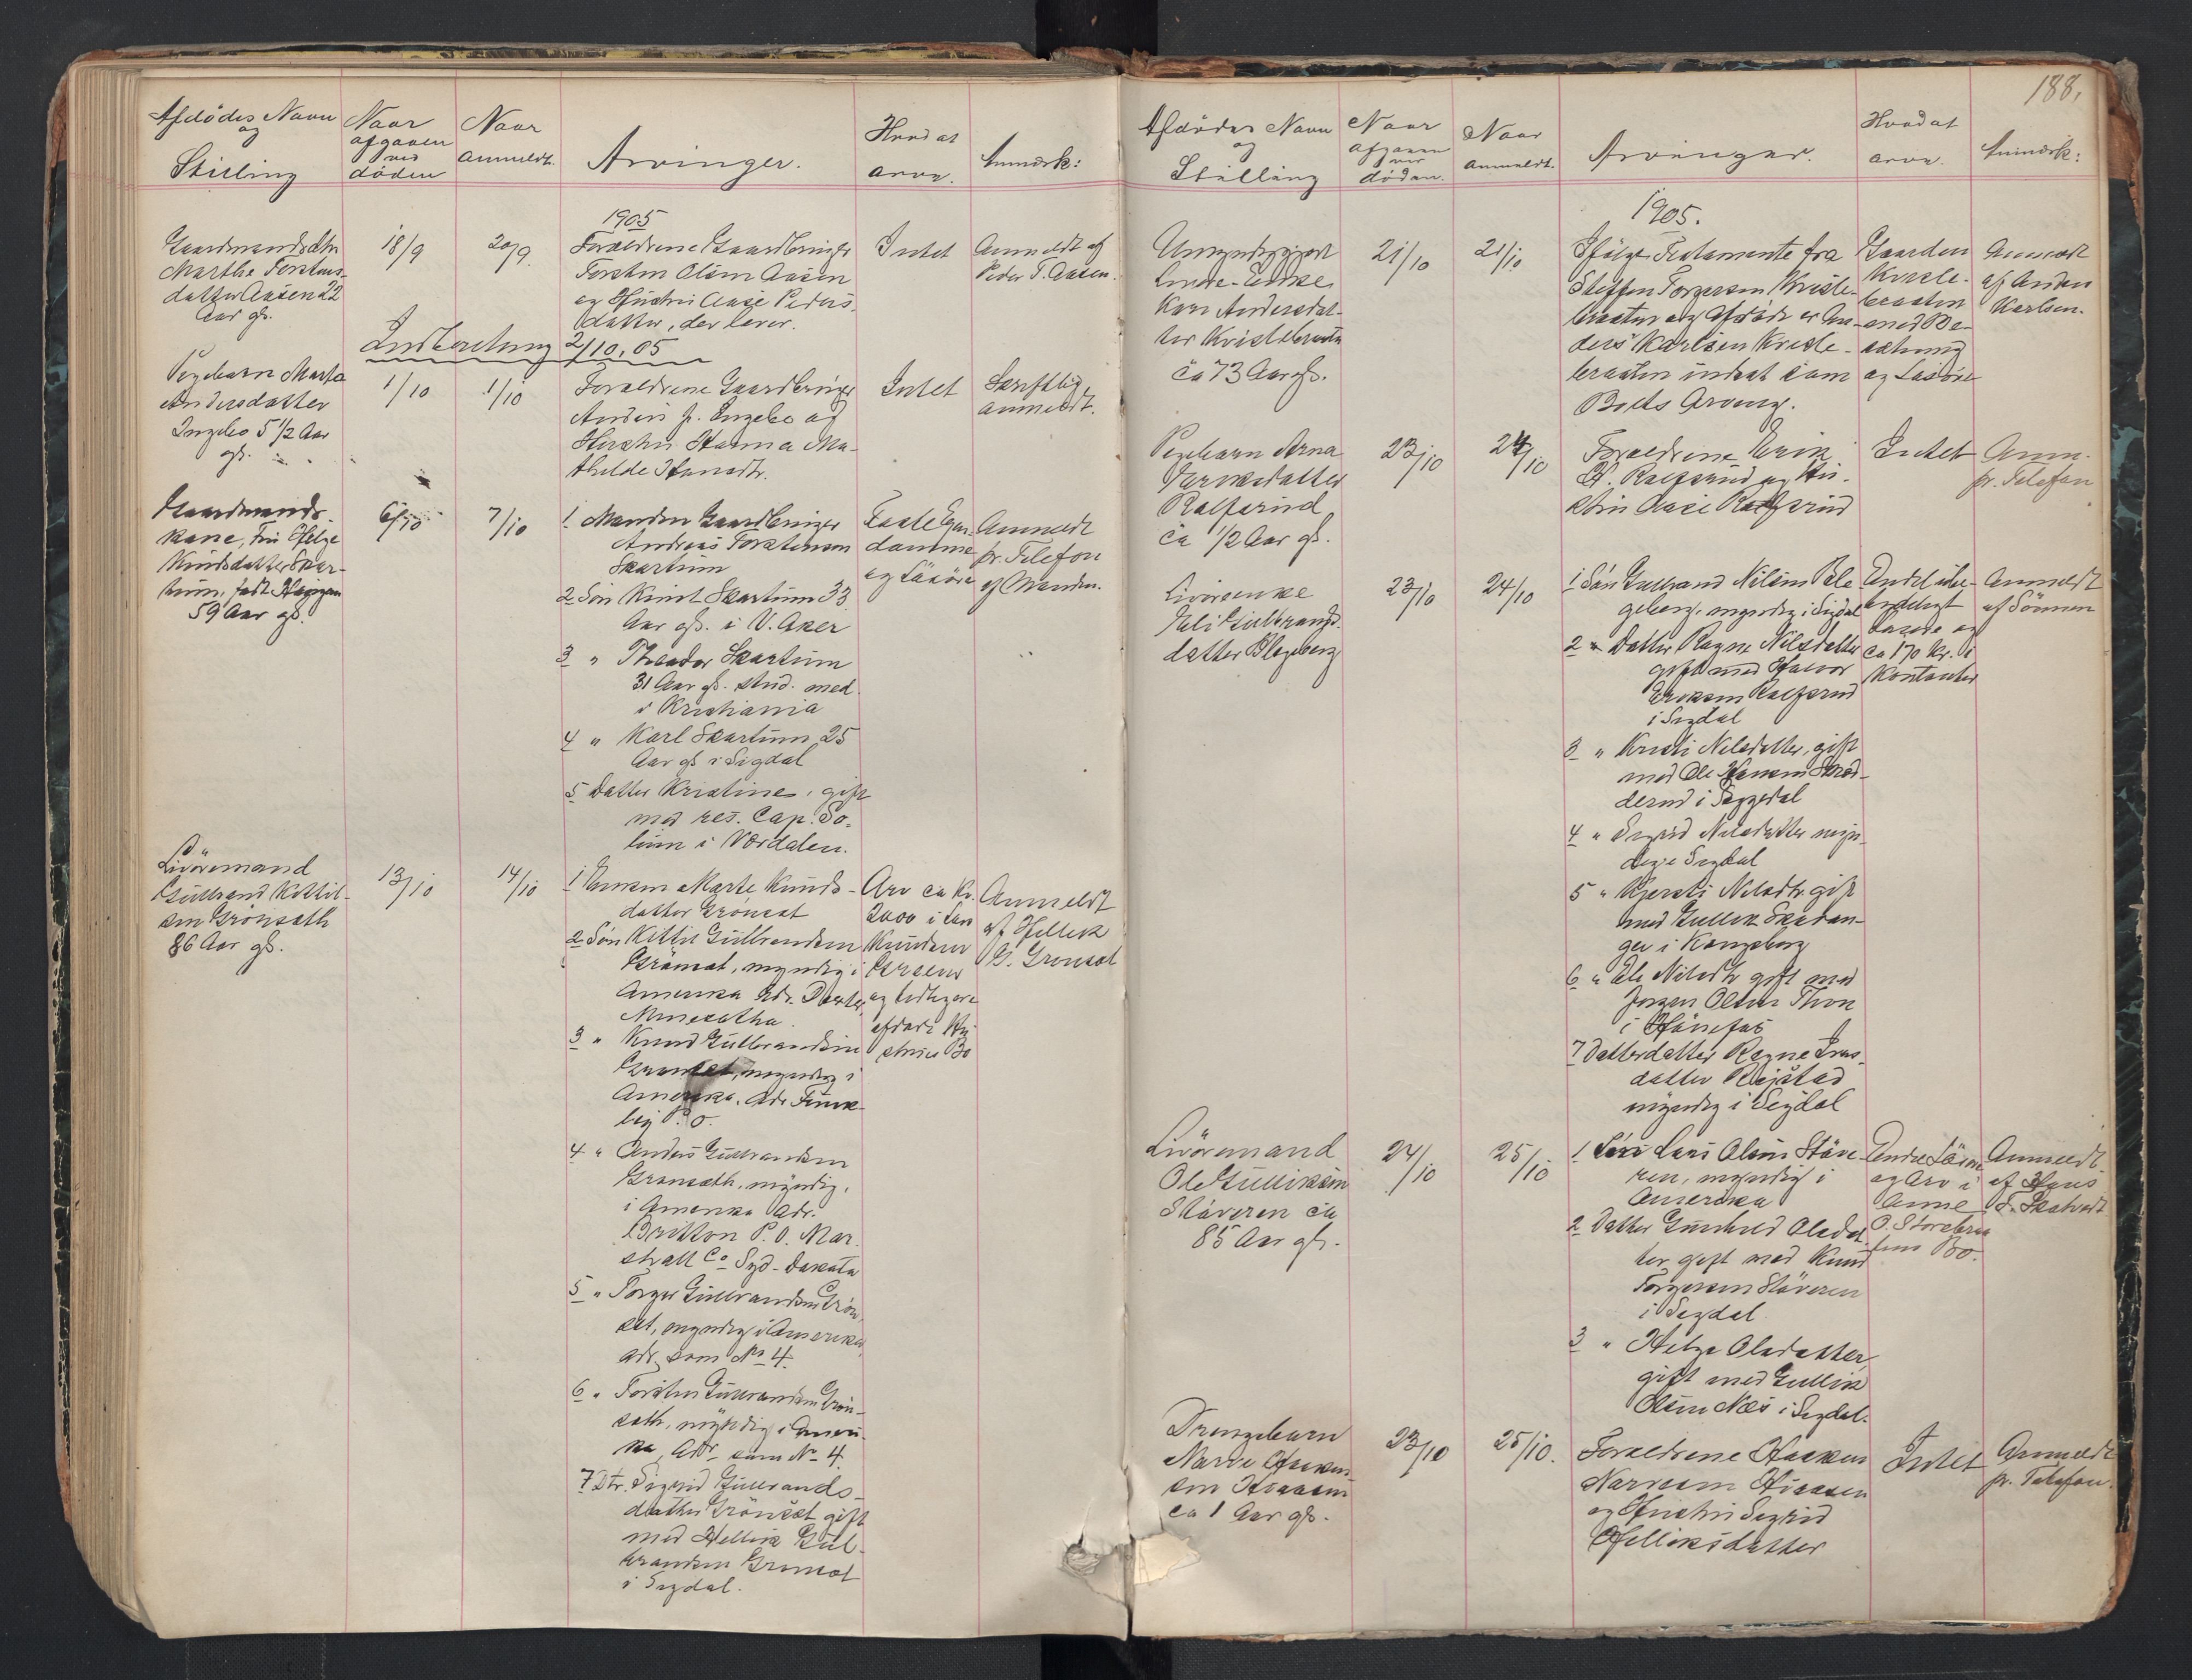 Afdødes Navn
og
Stilling
Naar
afgaaen
ved
døden
Naar
anmeldt.
Arvinger.
Hvad at
arve.
Anmærk:
1905
Gaardmandsdtr
Marthe Torstens-
datter Aasen 22
Aar gl.
18/9
20/9.
Forældrene Gaardbruger
Torsten Olsen Aasen
og Hustru Aase Peders-
datter, der lever.
Intet
Anmeldt af
Peder T. Aasen.
Indberetning 2/10. 05
Pigebarn Marta
Andersdatter
Engebo 5 1/2 Aar
gl.
1/10
1/10
Forældrene Gaardbruger
Anders P. Engebo og
Hustru Hanna Ma-
thilde Hansdtr.
Intet
Skriftlig
anmeldt.
Gaardmands
kone, Fru Helge
Knudsdatter Skar-
tum, født Haugan
59 Aar gl.
6/10
7/10
1 Manden Gaardbruger
Andreas Torstensen
Skartum
2 Søn Knut Skartum 33
Aar gl. i V. Aker
3 " Theodor Skartum
31 Aar gl. stud. med.
i Kristiania
4 " Karl Skartum 25
Aar gl i Sigdal
5 Datter Kristine, gift
med res. Cap. So-
lum i Værdalen.
Faste Ejen-
domme
og Løsøre
Anmeldt
pr. Telefon
af Manden.
Livøremand
Gulbrand Kittil-
sen Grønsath
86 Aar gl.
13/10
14/10
1 Enken Marte Knuds-
datter Grønsat
2 Søn Kittil Gulbrandsen
Grønsat, myndig i
Amerika Adr. Dexter,
Minesotha
3 " Knud Gulbrandsen
Grønsat, myndig i
Amerika. Adr
P. O.
4 " Anders Gulbrandsen
Grønsath, myndig,
i Amerika Adr.
Britton P. O. Mar-
shall Co Syd-Dakota
5 " Torger Gulbrandsen Grøn-
sat, myndig i Amerika,
Adr som No 4.
6 " Torsten Gulbrandsen Grøn-
sath, myndig i Ameri-
ka, Adr. som No 4.
7 Dtr. Sigrid Gulbrands-
datter Grønsat gift
med Hellik Gul-
brandsen Grønsat
i Sigdal.
Arv ca Kr.
2000 i
Knudsen
og tidligere
afdøde Hu-
strues Bo
Anmeldt
af Hellik
G. Grønsat
188.
Afdødes Navn
og
Stilling
Naar
afgaaen
ved
døden.
Naar
anmeldt.
Arvinger.
Hvad at
arve.
Anmærk:
1905.
Umyndiggjort
Enke
Kari Andersdat-
ter Kvislebraaten
ca 73 Aar gl.
21/10
21/10
Ifølge Testamente fra
Steffen Torgersen Kvisle-
braaten og Afdøde er An-
ders Karlsen Kvisle-
braaten indsat som
Boets Arving.
Gaarden
Kvisle-
braaten
med Be-
sætning
og Løsøre
Anmeldt
af Anders
Karlsen.
Pigebarn Arna
Eriksdatter
Ralfsrud
ca 1/2 Aar gl.
23/10
24/10
Forældrene Erik
H. Ralfsrud og Hu-
stru Aase Ralfsrud
Intet
Anm.
pr. Telefon
Livørenke
Eli Gulbrands-
datter Blegeberg
23/10
24/10
1 Søn Gulbrand Nilsen Ble-
geberg, myndig i Sigdal
2 " Datter Ragne Nilsdatter
gift med Halvor
Eriksen Ralfsrud
i Sigdal
3 " Kristi Nilsdatter, gift
med Ole Hansen Skred-
derud i Siggedal
4 " Sigrid Nilsdatter myn-
dig i Sigdal
5 " Kjersti Nilsdtr gift
med Gullik Skadan-
ger i Kongsberg
6 " Eli Nilsdtr gift med
Jørgen Olsen Thon
i Hønefos
7 Datterdatter Ragne Ivers-
datter Rejstad
myndig i Sigdal
Endel ube-
tydeligt
Løsøre og
ca 170 Kr. i
Kontanter
Anmeldt
af Sønnen
Livøremand
Ole Gulliksen
Støveren ca
85 Aar gl.
24/10
25/10
1 Søn Lars Olsen Støve-
ren, myndig i
Amerika
2 Datter Gunhild Olsdat-
ter gift med Knud
Torgersen Støveren
i Sigdal.
3 " Helge Olsdatter,
gift med Gullik
Olsen Næs i Sigdal.
Endel Løsøre
og Arv i
Anne
O. Storebraa-
tens Bo.
Anmeldt
af Hans
Skatvedt
Drengebarn
Narve Haaken-
sen Hiaasen
ca 1 Aar gl.
23/10
25/10.
Forældrene Haaken
Narvesen Hiaasen
og Hustru Sigrid
Helliksdatter
Intet
Anmeldt
pr. Telefon.